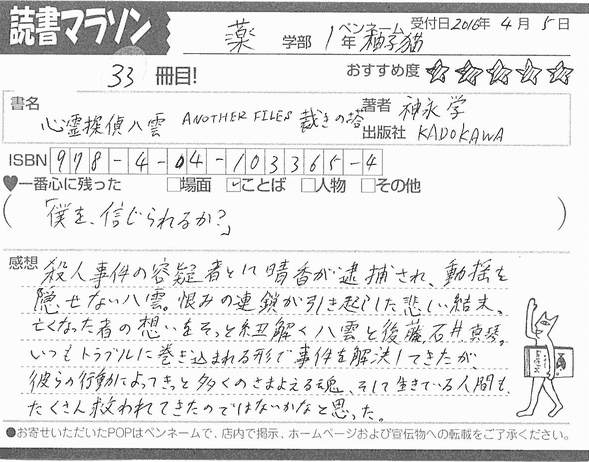 読書マラソン
薬 学部 1年 ペンネーム 柚子猫 受付日2016年4月5日
33冊目!
おすすめ度 ☆☆☆☆☆
書名 心霊探偵八雲 ANOTHER FILES 裁きの塔
著者 神永学
出版社 KADOKAWA
ISBN 978-4-04-103365-4
♥一番心に残った □場面 ☑ことば □人物 □その他
(「僕を、信じられるか?」)
感想 殺人事件の容疑者として晴香が逮捕され、動揺を
隠せない八雲。恨みの連鎖が引き起こした悲しい結末。
亡くなった者の想いをそっと紐解く八雲と後藤、石井、真琴。
いつもトラブルに巻き込まれる形で事件を解決してきたが、
彼らの行動によってきっと多くのさまよえる魂、そして生きている人間も、
たくさん救われてきたのではないかなと思った。
●お寄せいただいたPOPはペンネームで、店内で掲示、ホームページおよび宣伝物への転載をご了承ください。